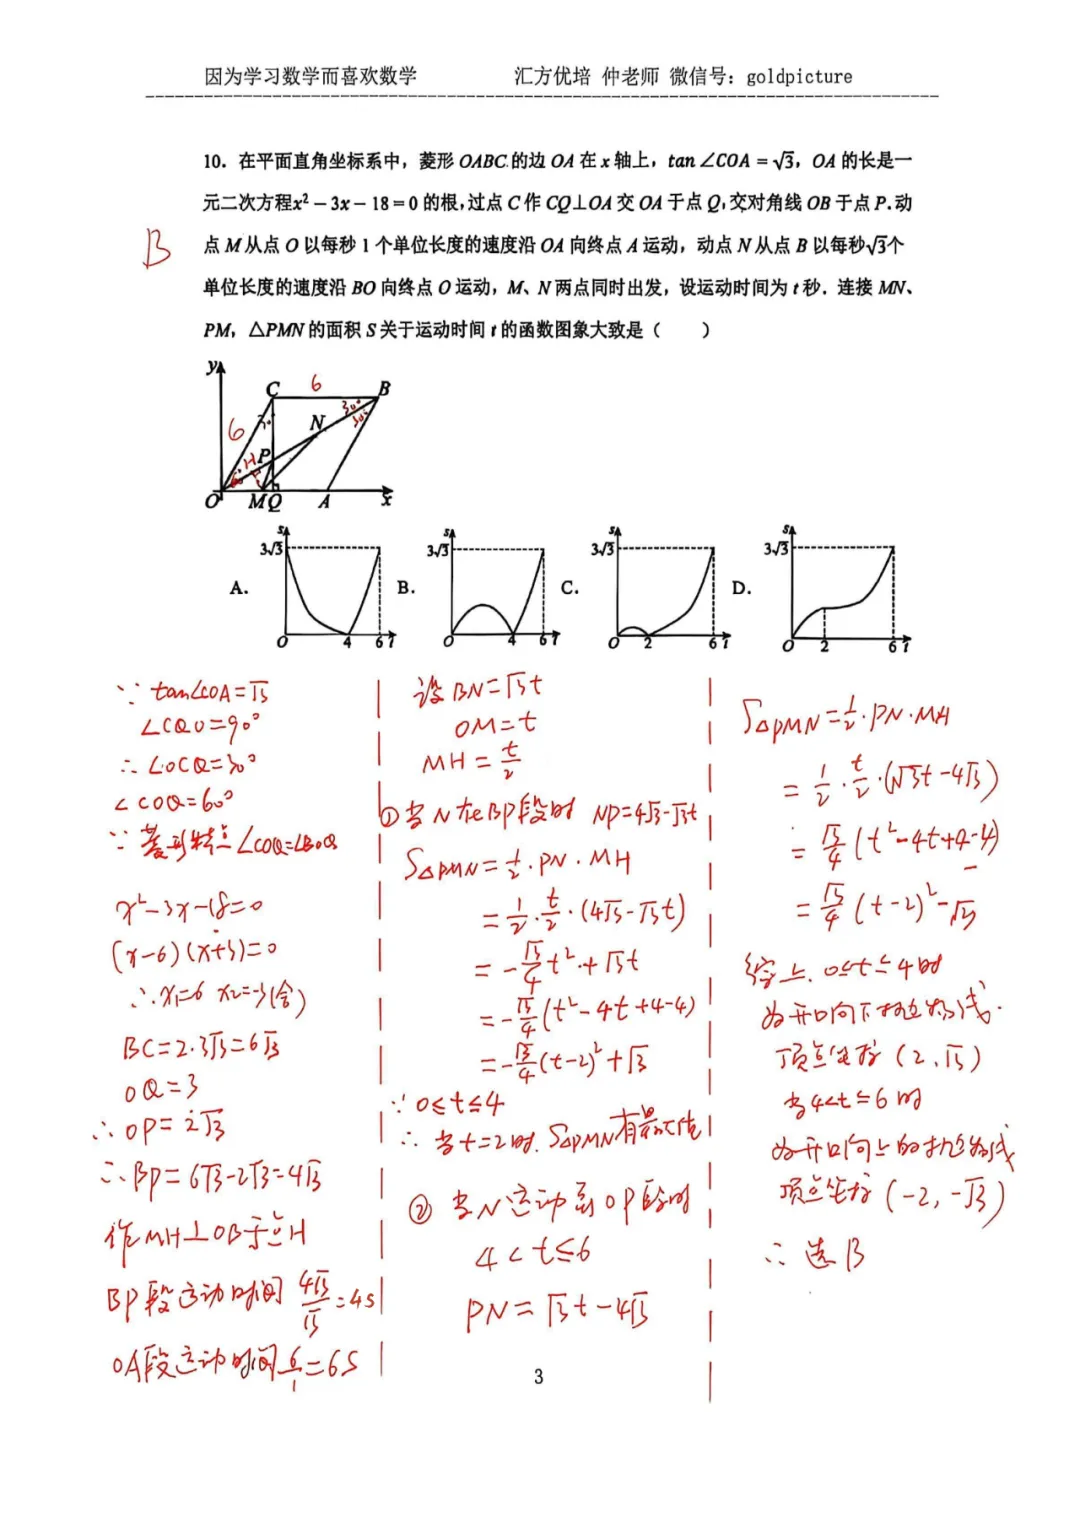 因为学习数学而喜欢数学 汇方优培 仲老师 微信号: goldpicture
10. 在平面直角坐标系中，菱形 OABC 的边 OA 在 x 轴上，tan ∠COA = √3，OA 的长是一
元二次方程x² − 3x − 18 = 0 的根，过点 C 作 CQ⊥OA 交 OA 于点 Q，交对角线 OB 于点 P. 动
点 M 从点 O 以每秒 1 个单位长度的速度沿 OA 向终点 A 运动，动点 N 从点 B 以每秒√3个
单位长度的速度沿 BO 向终点 O 运动，M、N 两点同时出发，设运动时间为 t 秒. 连接 MN、
PM，△PMN 的面积 S 关于运动时间 t 的函数图象大致是（ ）
B
y
C 6 B
30° 30° 30°
6 N
H P
60°
O M Q A x
A. S 3√3 O 4 6 t
B. S 3√3 O 4 6 t
C. S 3√3 O 2 6 t
D. S 3√3 O 2 6 t
∵ tan∠COA=√3
∠CQO=90°
∴ ∠OCQ=30°
∠COQ=60°
∵ 菱形特点 ∠COQ=∠BOQ
x²-3x-18=0
(x-6)(x+3)=0
∴ x₁=6 x₂=-3(舍)
BC=2·3√3=6√3
OQ=3
∴ OP=2√3
∴ BP=6√3-2√3=4√3
作MH⊥OB于点H
BP段运动时间 4√3/√3=4s
OA段运动时间 6/1=6s
设 BN=√3t
OM=t
MH=t/2
①当N在BP段时 NP=4√3-√3t
S△PMN=1/2·PN·MH
=1/2·t/2·(4√3-√3t)
=-√3/4t²+√3t
=-√3/4(t²-4t+4-4)
=-√3/4(t-2)²+√3
∵ 0≤t≤4
∴ 当t=2时. S△PMN有最大值
② 当N运动到OP段时
4<t≤6
PN=√3t-4√3
S△PMN=1/2·PN·MH
=1/2·t/2·(√3t-4√3)
=√3/4(t²-4t+4-4)
=√3/4(t-2)²-√3
综上. 0≤t≤4时
为开口向下抛物线.
顶点坐标(2,√3)
当4<t≤6时
为开口向上的抛物线
顶点坐标(-2,-√3)
∴ 选B
3